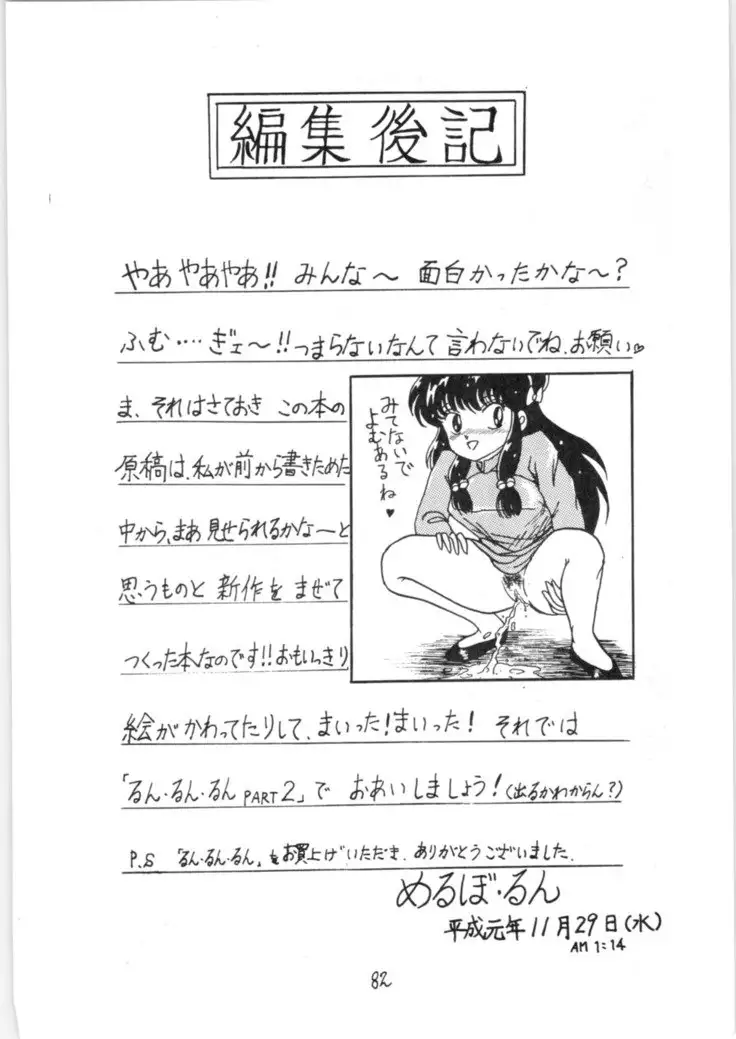 編集後記
やあ やあやあ!! みんな〜 面白かったかな〜?
ふむ‥‥ぎェ〜!! つまらないなんて 言わないでね、お願い♡
ま、それはさておき この本の
原稿は、私が前から書きためた
中から、まあ 見せられるかな〜と
思うものと 新作を まぜて
つくった本なのです!! おもいっきり
みてないで
よむあるね♥
絵がかわってたりして、まいった!まいった! それでは
「るん・るん・るん PART2」で おあいしましょう!(出るかわからん?)
P.S 「るん・るん・るん」をお買上げいただき、ありがとうございました.
めるぼ・るん
平成元年11月29日(水)
AM 1:14
82